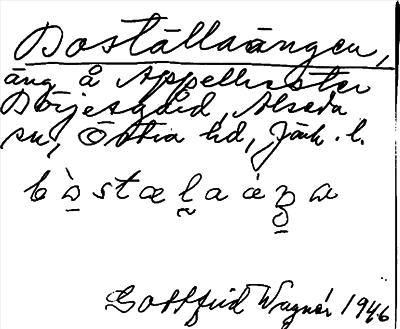 Boställaängen,
äng å Appelkester
Börjesgård, Alseda
sn, Östra hd, Jönk. l.
Gottfrid Wagnér 1946